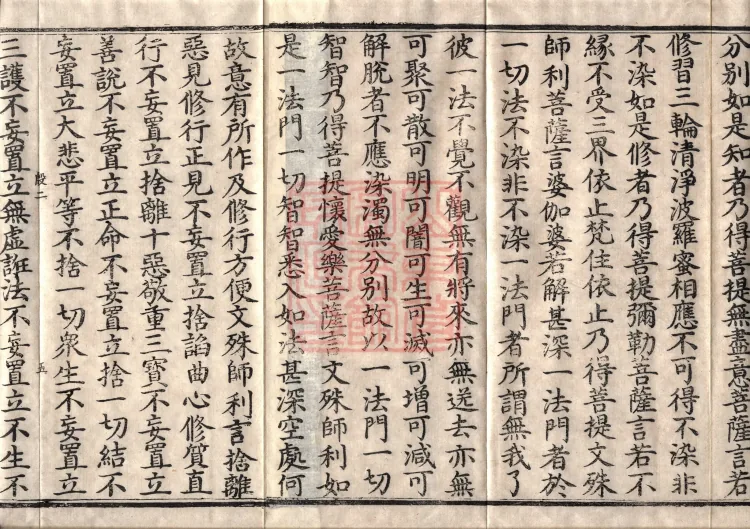 分別如是知者乃得菩提無盡意菩薩言若
修習三輪清淨波羅蜜相應不可得不染非
不染如是修者乃得菩提彌勒菩薩言若不
緣不受三界依止梵住依止乃得菩提文殊
師利菩薩言婆伽婆若解甚深一法門者於
一切法不染非不染一法門者所謂無我了
彼一法不覺不觀無有將來亦無送去亦無
可聚可散可明可闇可生可滅可增可減可
解脫者不應染濁無分別故以一法門一切
智智乃得菩提懷愛樂菩薩言文殊師利如
是一法門一切智智悉入如法甚深空處何
故意有所作及修行方便文殊師利言捨離
惡見修行正見不妄置立捨諂曲心修質直
行不妄置立捨離十惡敬重三寶不妄置立
善說不妄置立正命不妄置立捨一切結不
妄置立大悲平等不捨一切衆生不妄置立
殷二 五
三護不妄置立無虛誑法不妄置立不生不